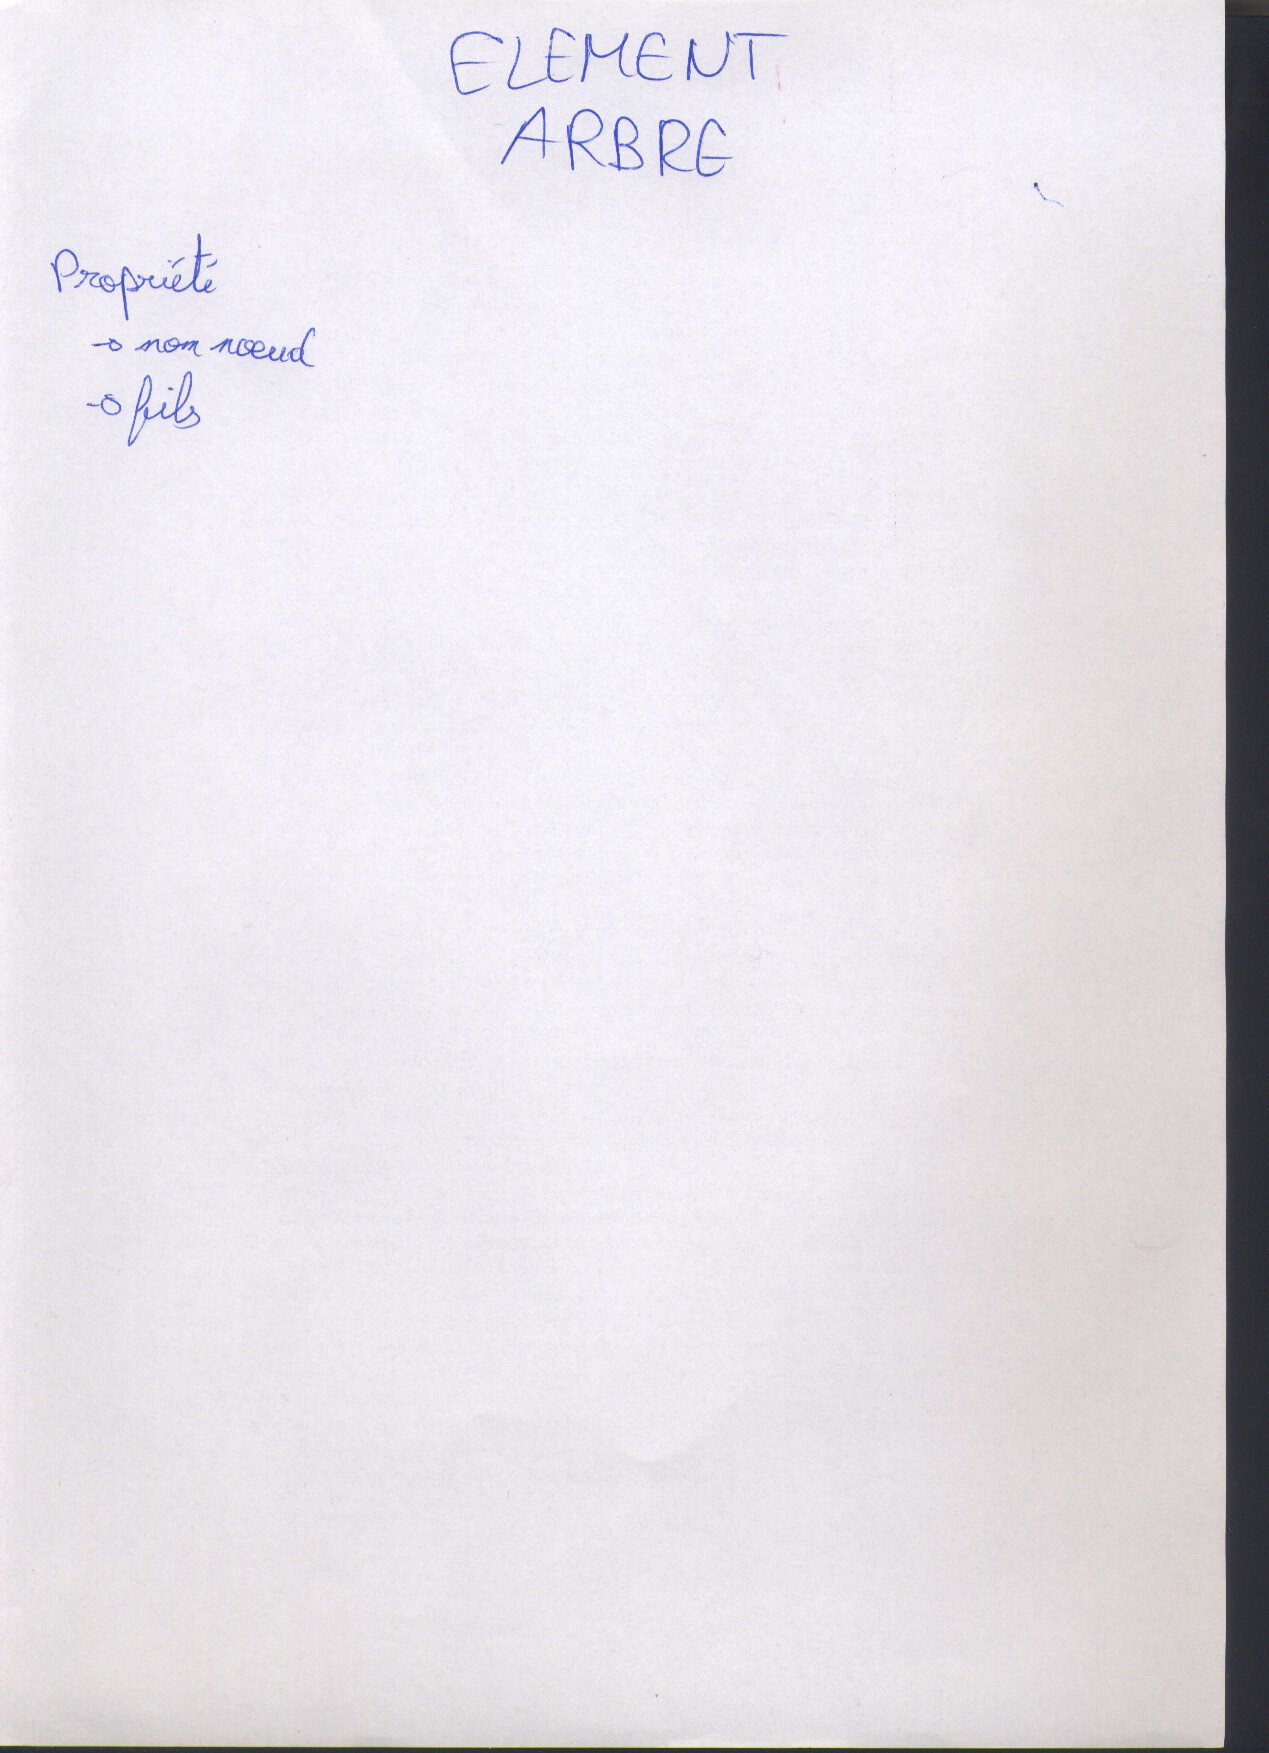 ELEMENT
ARBRE
Propriété
-o nom nœud
-o fils